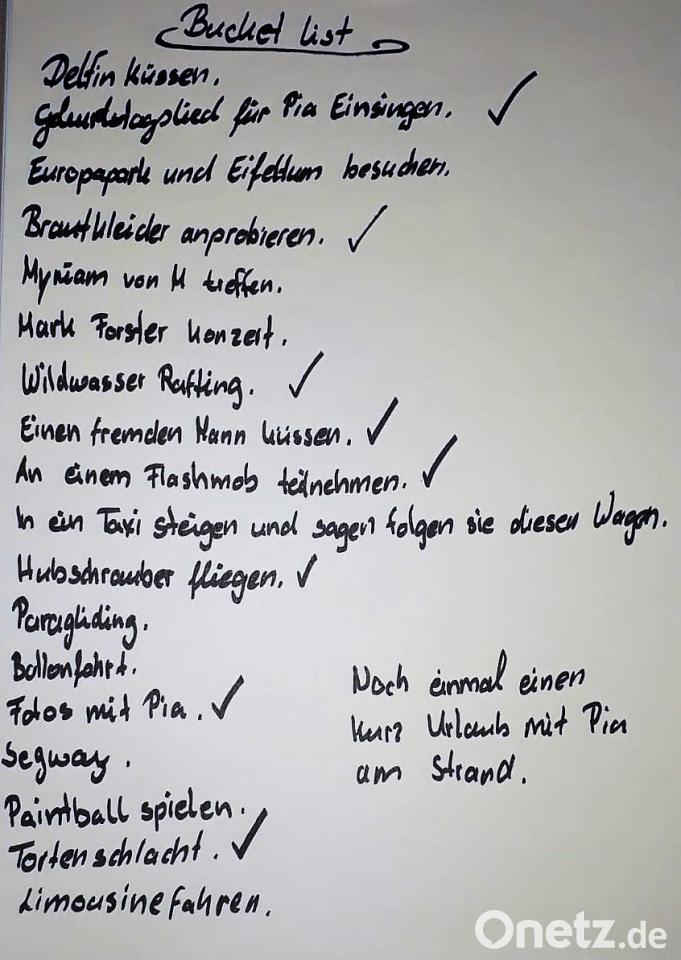 Bucket list
Delfin küssen.
Geburtstagslied für Pia Einsingen. ✓
Europapark und Eifelturm besuchen.
Brautkleider anprobieren. ✓
Myriam von M treffen.
Mark Forster Konzert.
Wildwasser Rafting. ✓
Einen fremden Mann küssen. ✓
An einem Flashmob teilnehmen. ✓
In ein Taxi steigen und sagen folgen sie diesen Wagen.
Hubschrauber fliegen. ✓
Paragliding.
Ballonfahrt.
Fotos mit Pia. ✓
Segway.
Paintball spielen.
Tortenschlacht. ✓
Limousine fahren.
Noch einmal einen
kurz Urlaub mit Pia
am Strand.
Onetz.de